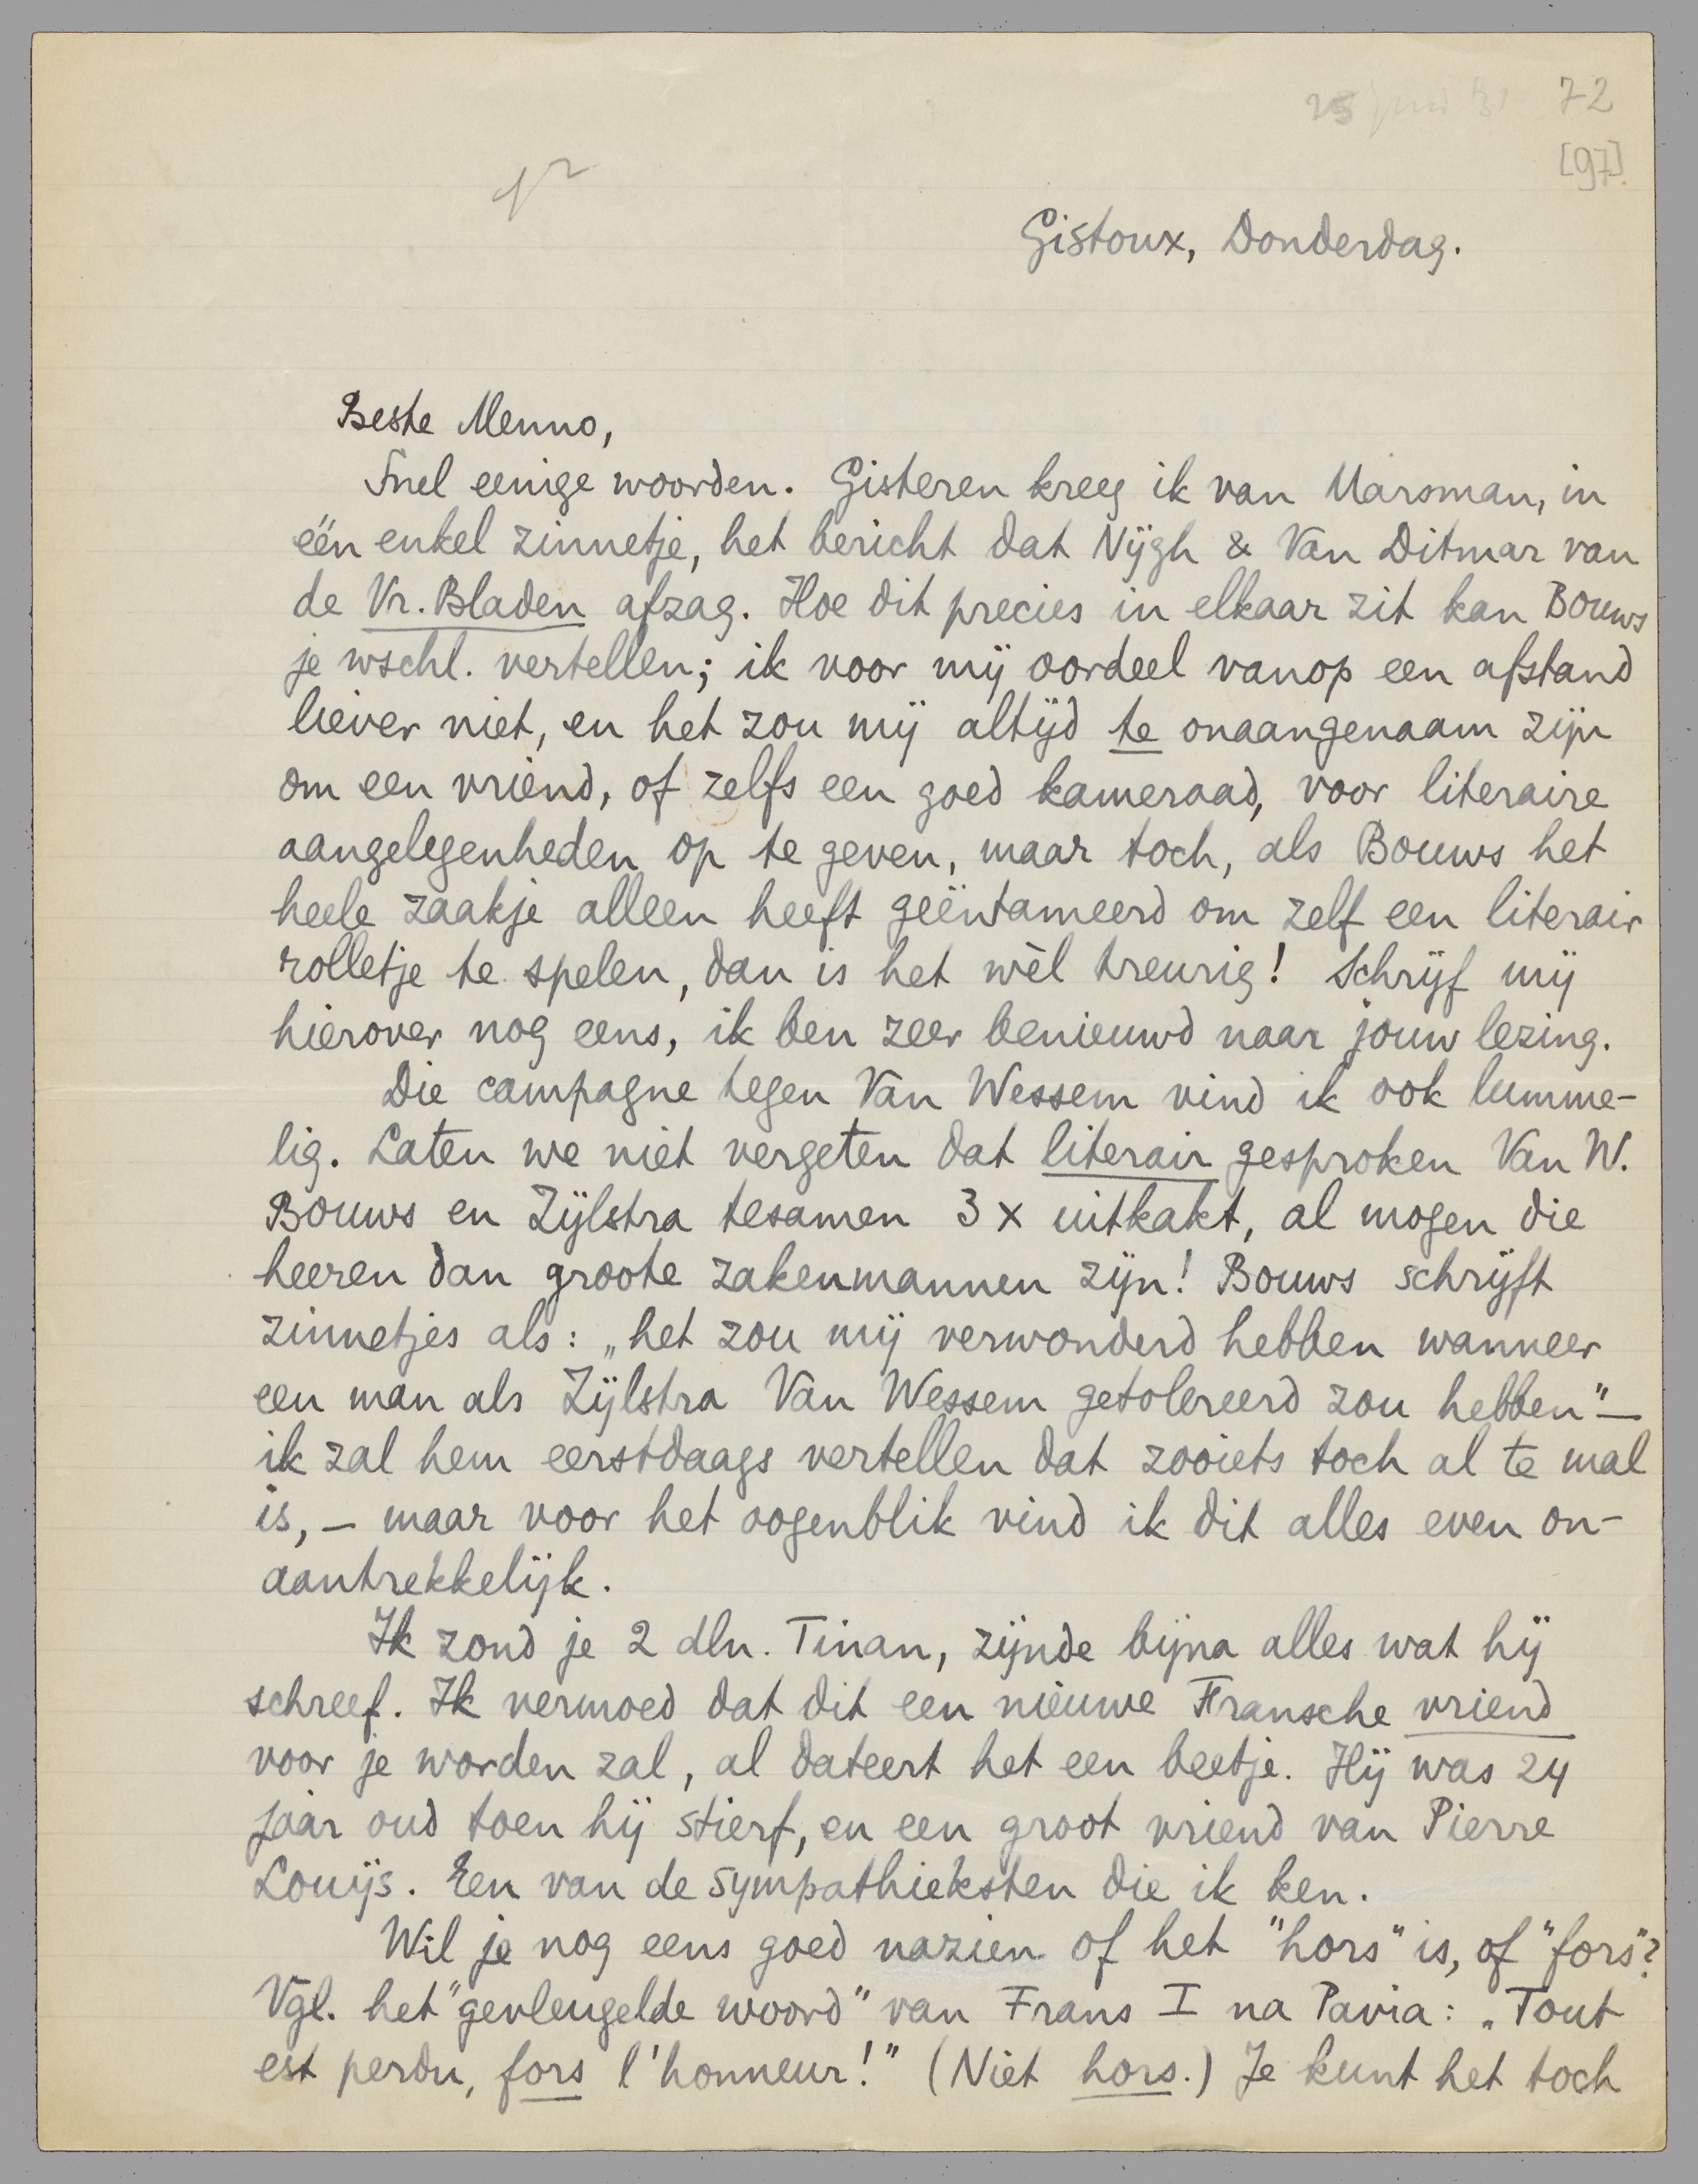 72
[97]
Gistoux, Donderdag.
Beste Menno,
Snel eenige woorden. Gisteren kreeg ik van Marsman, in
één enkel zinnetje, het bericht dat Nijgh & Van Ditmar van
de Vr. Bladen afzag. Hoe dit precies in elkaar zit kan Bouws
je wschl. vertellen; ik voor mij oordeel vanop een afstand
liever niet, en het zou mij altijd te onaangenaam zijn
om een vriend, of zelfs een goed kameraad, voor literaire
aangelegenheden op te geven, maar toch, als Bouws het
heele zaakje alleen heeft geëntameerd om zelf een literair
rolletje te spelen, dan is het wèl treurig! Schrijf mij
hierover nog eens, ik ben zeer benieuwd naar jouw lezing.
Die campagne tegen Van Wessem vind ik ook lumme-
lig. Laten we niet vergeten dat literair gesproken Van W.
Bouws en Zijlstra tesamen 3 x uitkakt, al mogen die
heeren dan groote zakenmannen zijn! Bouws schrijft
zinnetjes als: „het zou mij verwonderd hebben wanneer
een man als Zijlstra Van Wessem getolereerd zou hebben" —
ik zal hem eerstdaags vertellen dat zooiets toch al te mal
is, — maar voor het oogenblik vind ik dit alles even on-
aantrekkelijk.
Ik zond je 2 dln. Tinan, zijnde bijna alles wat hij
schreef. Ik vermoed dat dit een nieuwe Fransche vriend
voor je worden zal, al dateert het een beetje. Hij was 24
jaar oud toen hij stierf, en een groot vriend van Pierre
Louÿs. Een van de sympathieksten die ik ken.
Wil je nog eens goed nazien of het "hors" is, of "fors"?
Vgl. het "gevleugelde woord" van Frans I na Pavia: „Tout
est perdu, fors l'honneur!" (Niet hors.) Je kunt het toch